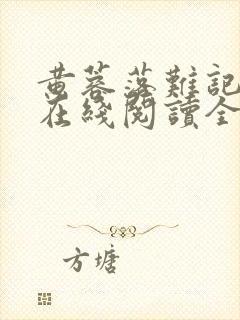 黄蓉落難記
在綫閱讀全
方塘